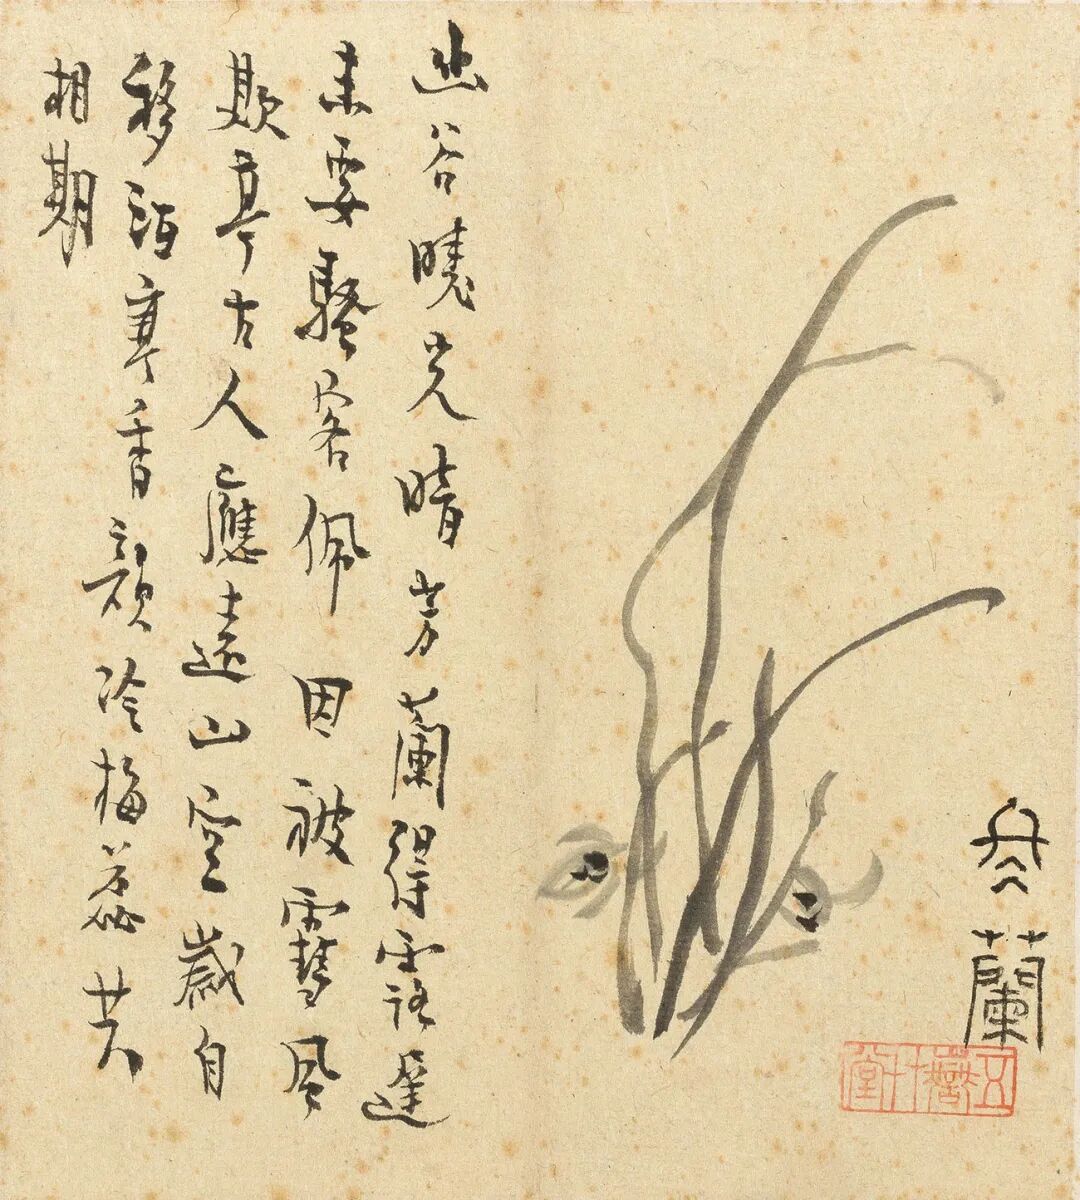 冬蘭
幽谷曉光晴芳蘭得露遲
未要騷客佩因被雪風
欺亭古人應遠山空歲自
移酒亭香韻冷梅蕊共
相期